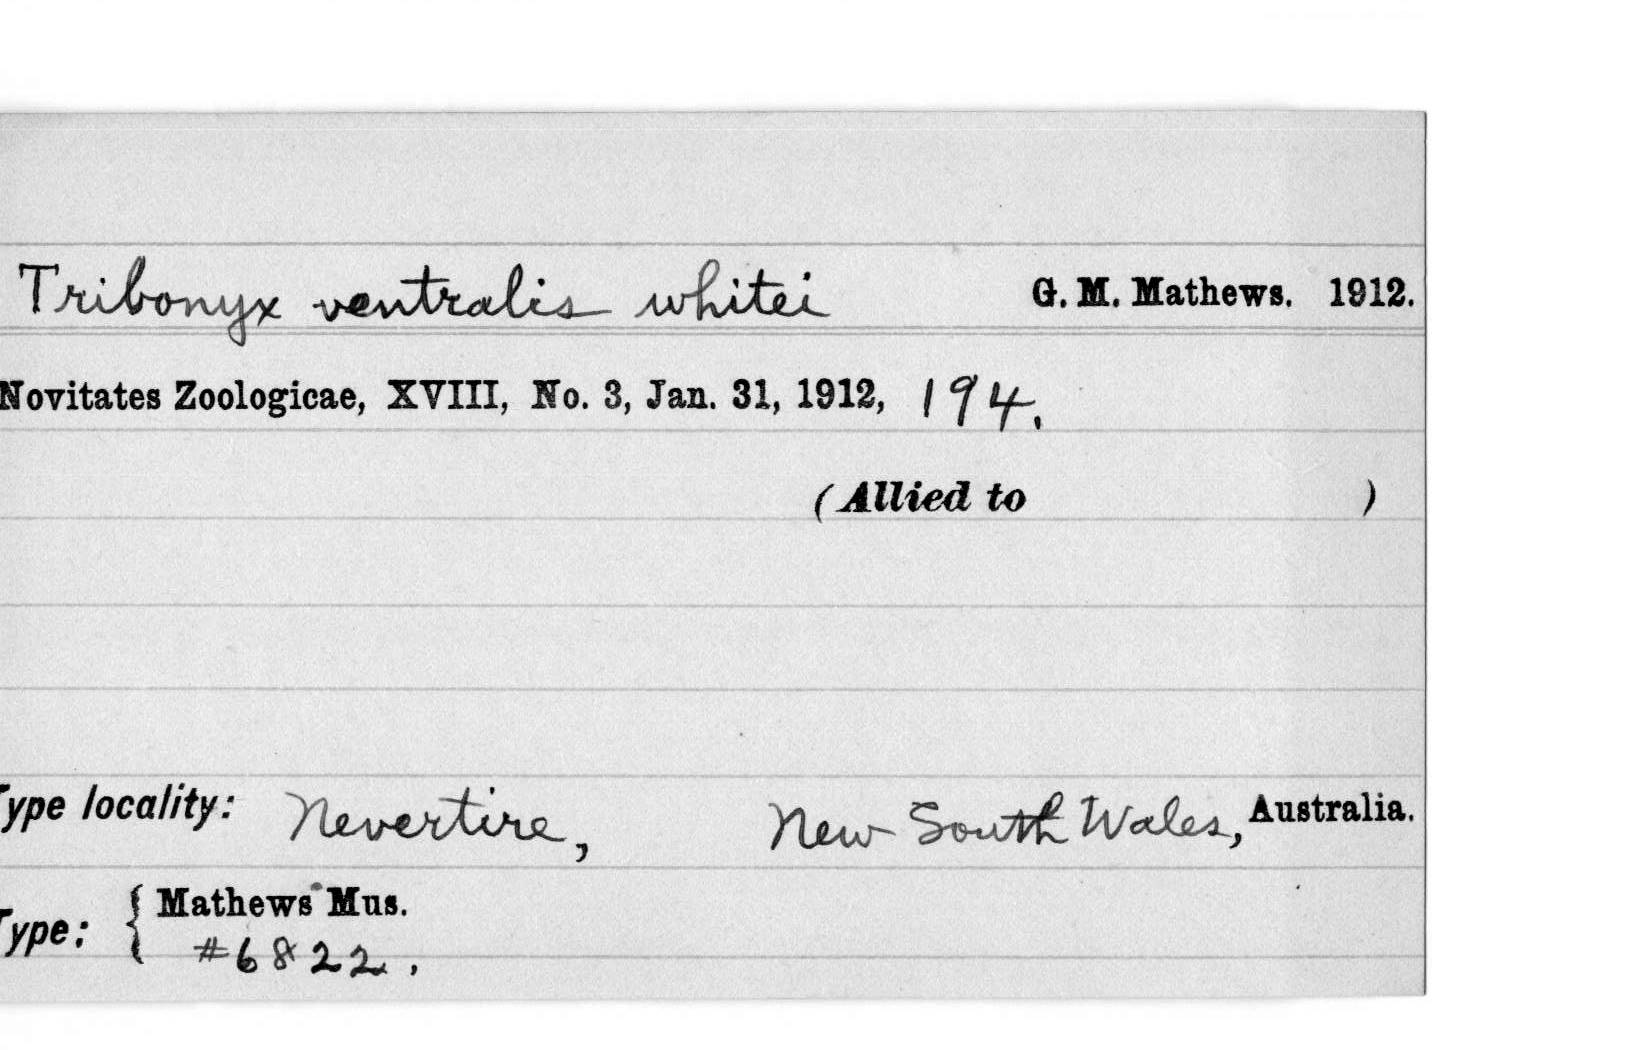 Tribonyx ventralis whitei G. M. Mathews. 1912.
Novitates Zoologicae, XVIII, No. 3, Jan. 31, 1912, 194.
(Allied to )
Type locality: Nevertire, New South Wales, Australia.
Type: { Mathews Mus.
#6822.